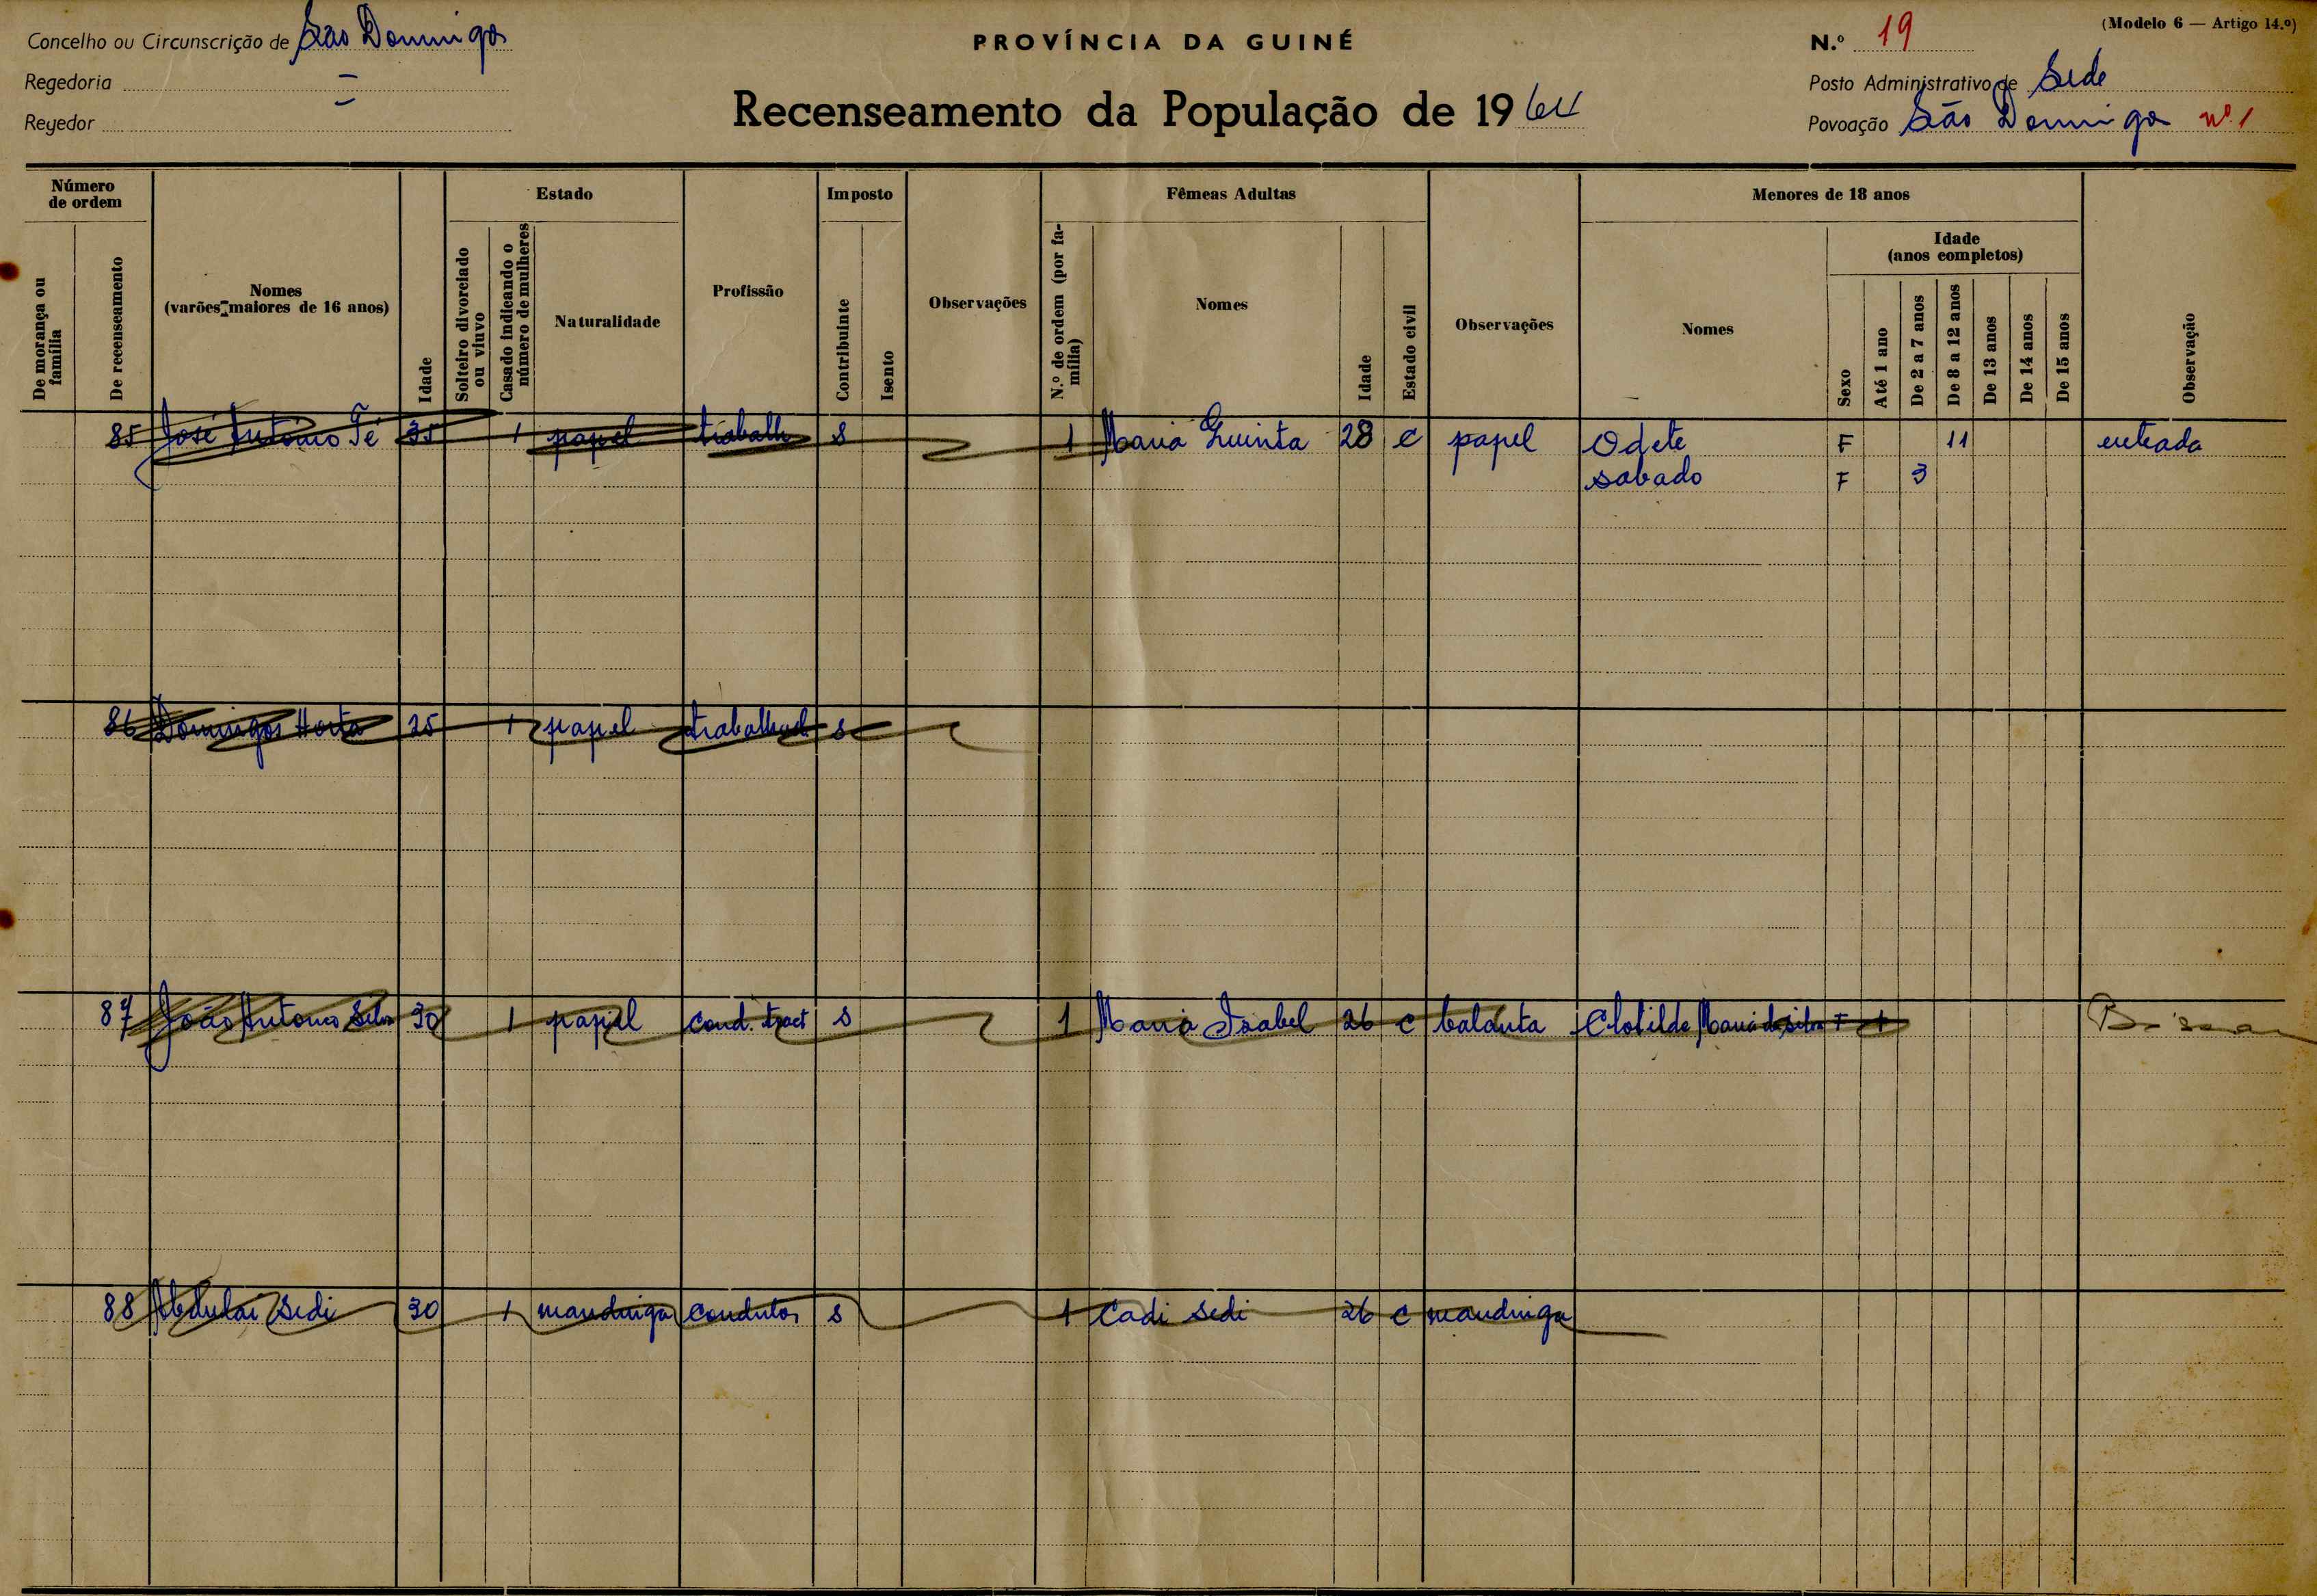 Concelho ou Circunscrição de São Domingos
PROVÍNCIA DA GUINÉ
N.º 19
(Modelo 6 — Artigo 14.º)
Regedoria
Recenseamento da População de 1964
Posto Administrativo de Sede
Reyedor
Povoação São Domingos nº 1
Número de ordem
Estado
Imposto
Fêmeas Adultas
Menores de 18 anos
De morança ou família
De recenseamento
Nomes (varões maiores de 16 anos)
Idade
Solteiro divorciado ou viuvo
Casado indicando o número de mulheres
Naturalidade
Profissão
Contribuinte
Isento
Observações
N.º de ordem (por família)
Nomes
Idade
Estado civil
Observações
Nomes
Sexo
Idade (anos completos)
Até 1 ano
De 2 a 7 anos
De 8 a 12 anos
De 13 anos
De 14 anos
De 15 anos
Observação
85 José Antonio Té 35 1 papel trabalh s 1 Maria Quinta 28 c papel Odete F 11 entrada
sabado F 3
86 Domingos Horta 25 1 papel trabalhad s
87 João Antonio Silva 30 1 papel cond. tract s 1 Maria Isabel 26 c balanta Clotilde Maria da silva F 1 Bissau
88 Abdulai Sedi 30 1 mandinga condutor s 1 Cadi Sedi 26 c mandinga